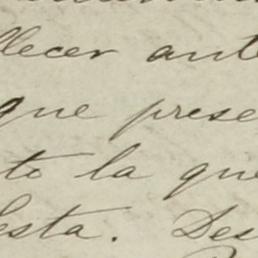 llecer ante
que prese
to la que
esta. Des